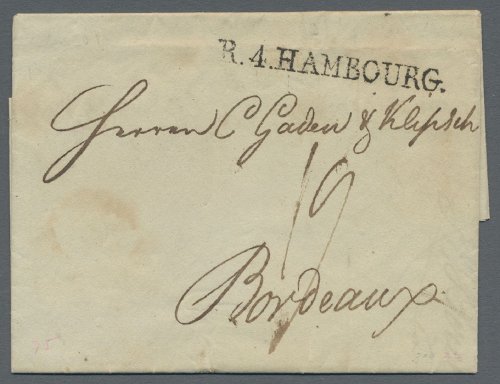 R.4.HAMBOURG.
Herren C Gaden & Klipsch
19
Bordeaux